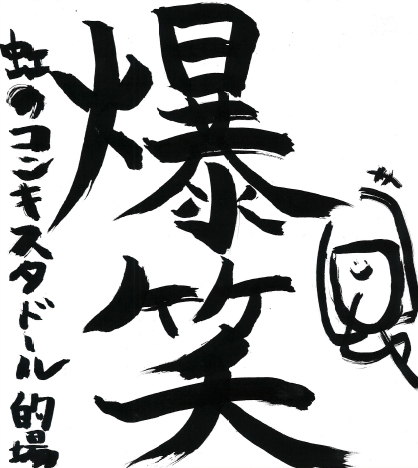 爆笑
虹のコンキスタドール 的場